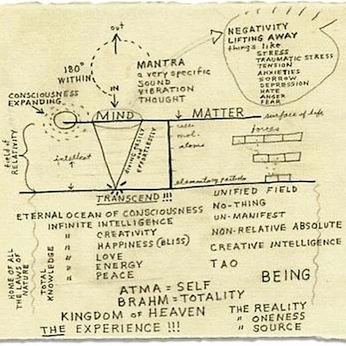 out
180°
WITHIN
IN
MANTRA
a very specific
SOUND
VIBRATION
THOUGHT
NEGATIVITY
LIFTING AWAY
things like
STRESS
TRAUMATIC STRESS
TENSION
ANXIETIES
SORROW
DEPRESSION
HATE
ANGER
FEAR
CONSCIOUSNESS
EXPANDING
MIND
MATTER
surface of life
field of
RELATIVITY
intellect
EFFORTLESSLY
cell
mol.
atoms
forces
elementary particles
TRANSCEND!!!
UNIFIED FIELD
ETERNAL OCEAN OF CONSCIOUSNESS
NO-THING
INFINITE INTELLIGENCE
UN-MANIFEST
" CREATIVITY
NON-RELATIVE ABSOLUTE
" HAPPINESS (BLISS)
CREATIVE INTELLIGENCE
" LOVE
" ENERGY
TAO
" PEACE
BEING
HOME OF ALL
THE LAWS OF
NATURE
TOTAL
KNOWLEDGE
ATMA = SELF
BRAHM = TOTALITY
KINGDOM OF HEAVEN
THE EXPERIENCE!!!
THE REALITY
" ONENESS
" SOURCE